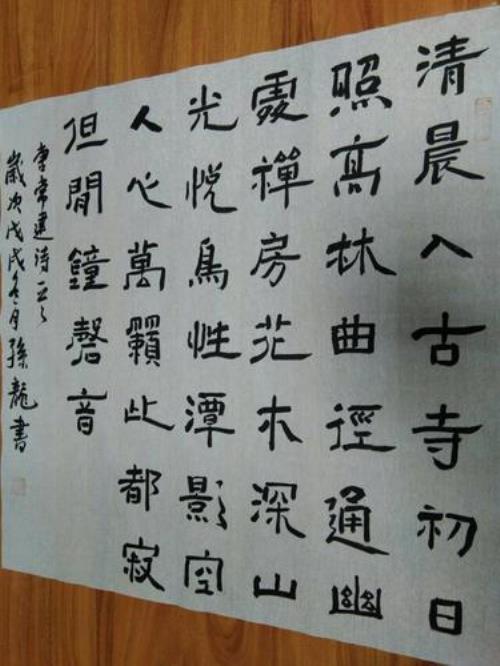 清晨入古寺初日
照高林曲徑通幽
處禪房花木深山
光悅鳥性潭影空
人心萬籟此都寂
但聞鐘磬音
唐常建詩
歲次戊戌冬月孫龍書